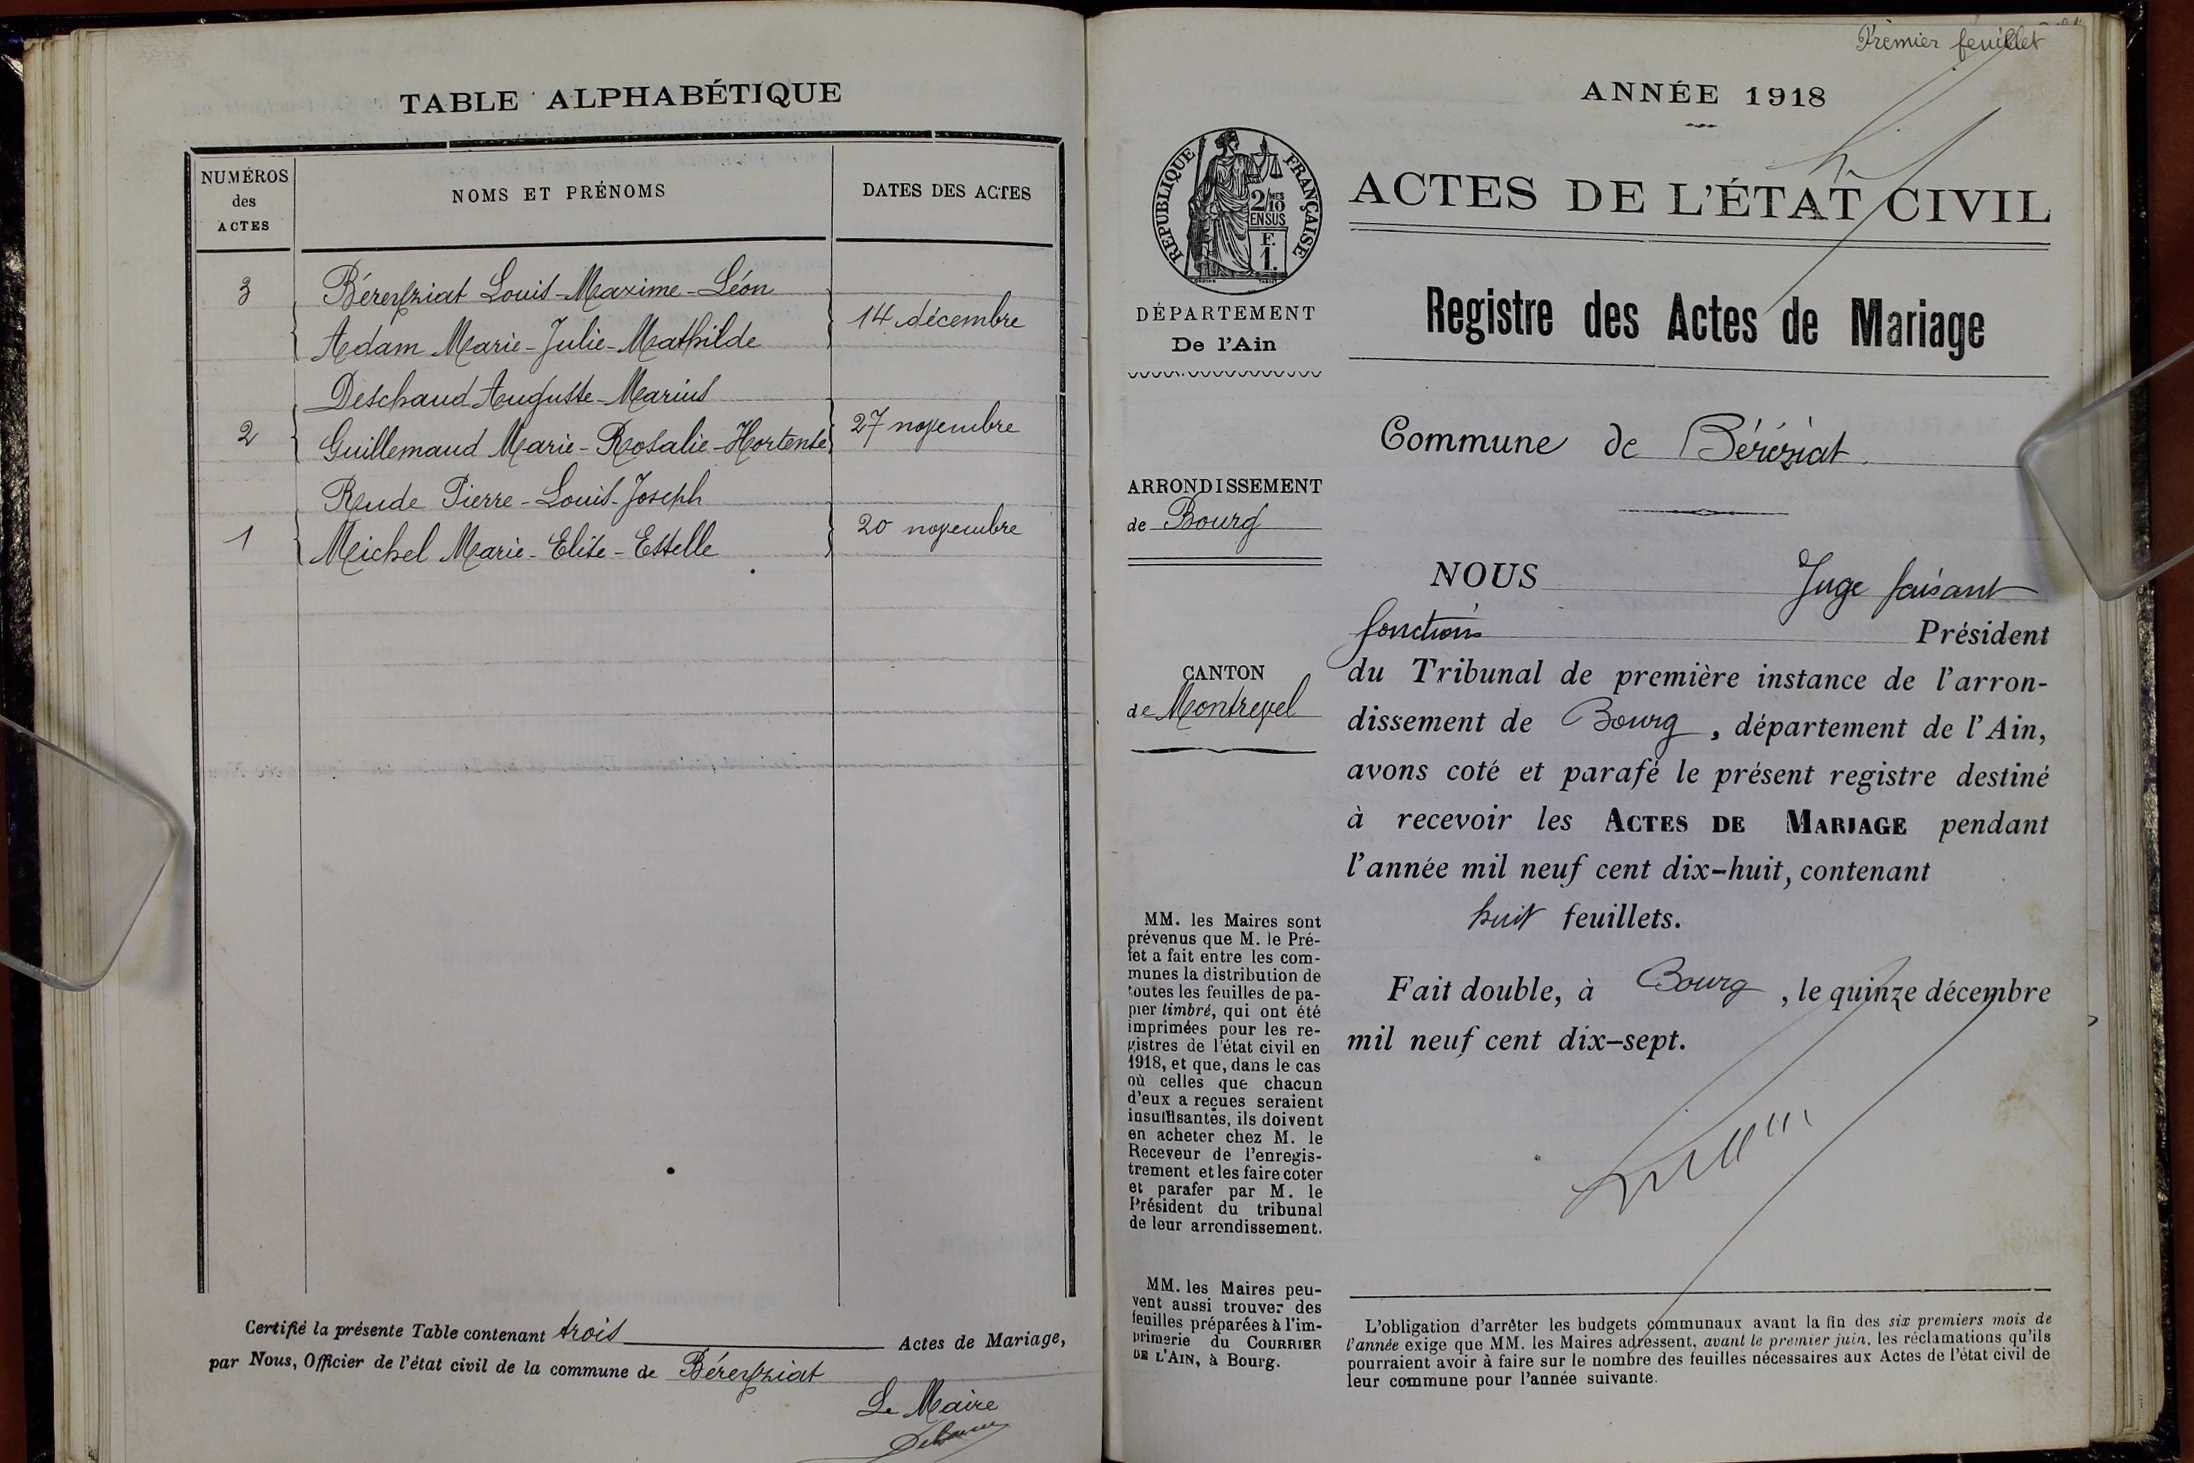 TABLE ALPHABÉTIQUE
NUMÉROS
des
ACTES
NOMS ET PRÉNOMS
DATES DES ACTES
3
Béreyziat Louis-Maxime-Léon
Adam Marie-Julie-Mathilde
14 décembre
Deschaud Auguste-Marius
2
Guillemaud Marie-Rosalie-Hortense
27 novembre
Rude Pierre-Louis-Joseph
1
Michel Marie-Elise-Estelle
20 novembre
Certifié la présente Table contenant trois Actes de Mariage,
par Nous, Officier de l'état civil de la commune de Béreyziat
Le Maire
Premier feuillet
ANNÉE 1918
RÉPUBLIQUE FRANÇAISE
2/10MES
EN SUS
F.
1.
ACTES DE L'ÉTAT CIVIL
DÉPARTEMENT
De l'Ain
Registre des Actes de Mariage
Commune de Béréziat
ARRONDISSEMENT
de Bourg
CANTON
de Montrevel
NOUS Juge faisant
fonctions Président
du Tribunal de première instance de l'arron-
dissement de Bourg, département de l'Ain,
avons coté et parafé le présent registre destiné
à recevoir les ACTES DE MARIAGE pendant
l'année mil neuf cent dix-huit, contenant
huit feuillets.
Fait double, à Bourg, le quinze décembre
mil neuf cent dix-sept.
MM. les Maires sont
prévenus que M. le Pré-
fet a fait entre les com-
munes la distribution de
toutes les feuilles de pa-
pier timbré, qui ont été
imprimées pour les re-
gistres de l'état civil en
1918, et que, dans le cas
où celles que chacun
d'eux a reçues seraient
insuffisantes, ils doivent
en acheter chez M. le
Receveur de l'enregis-
trement et les faire coter
et parafer par M. le
Président du tribunal
de leur arrondissement.
MM. les Maires peu-
vent aussi trouver des
feuilles préparées à l'im-
primerie du COURRIER
DE L'AIN, à Bourg.
L'obligation d'arrêter les budgets communaux avant la fin des six premiers mois de
l'année exige que MM. les Maires adressent, avant le premier juin, les réclamations qu'ils
pourraient avoir à faire sur le nombre des feuilles nécessaires aux Actes de l'état civil de
leur commune pour l'année suivante.